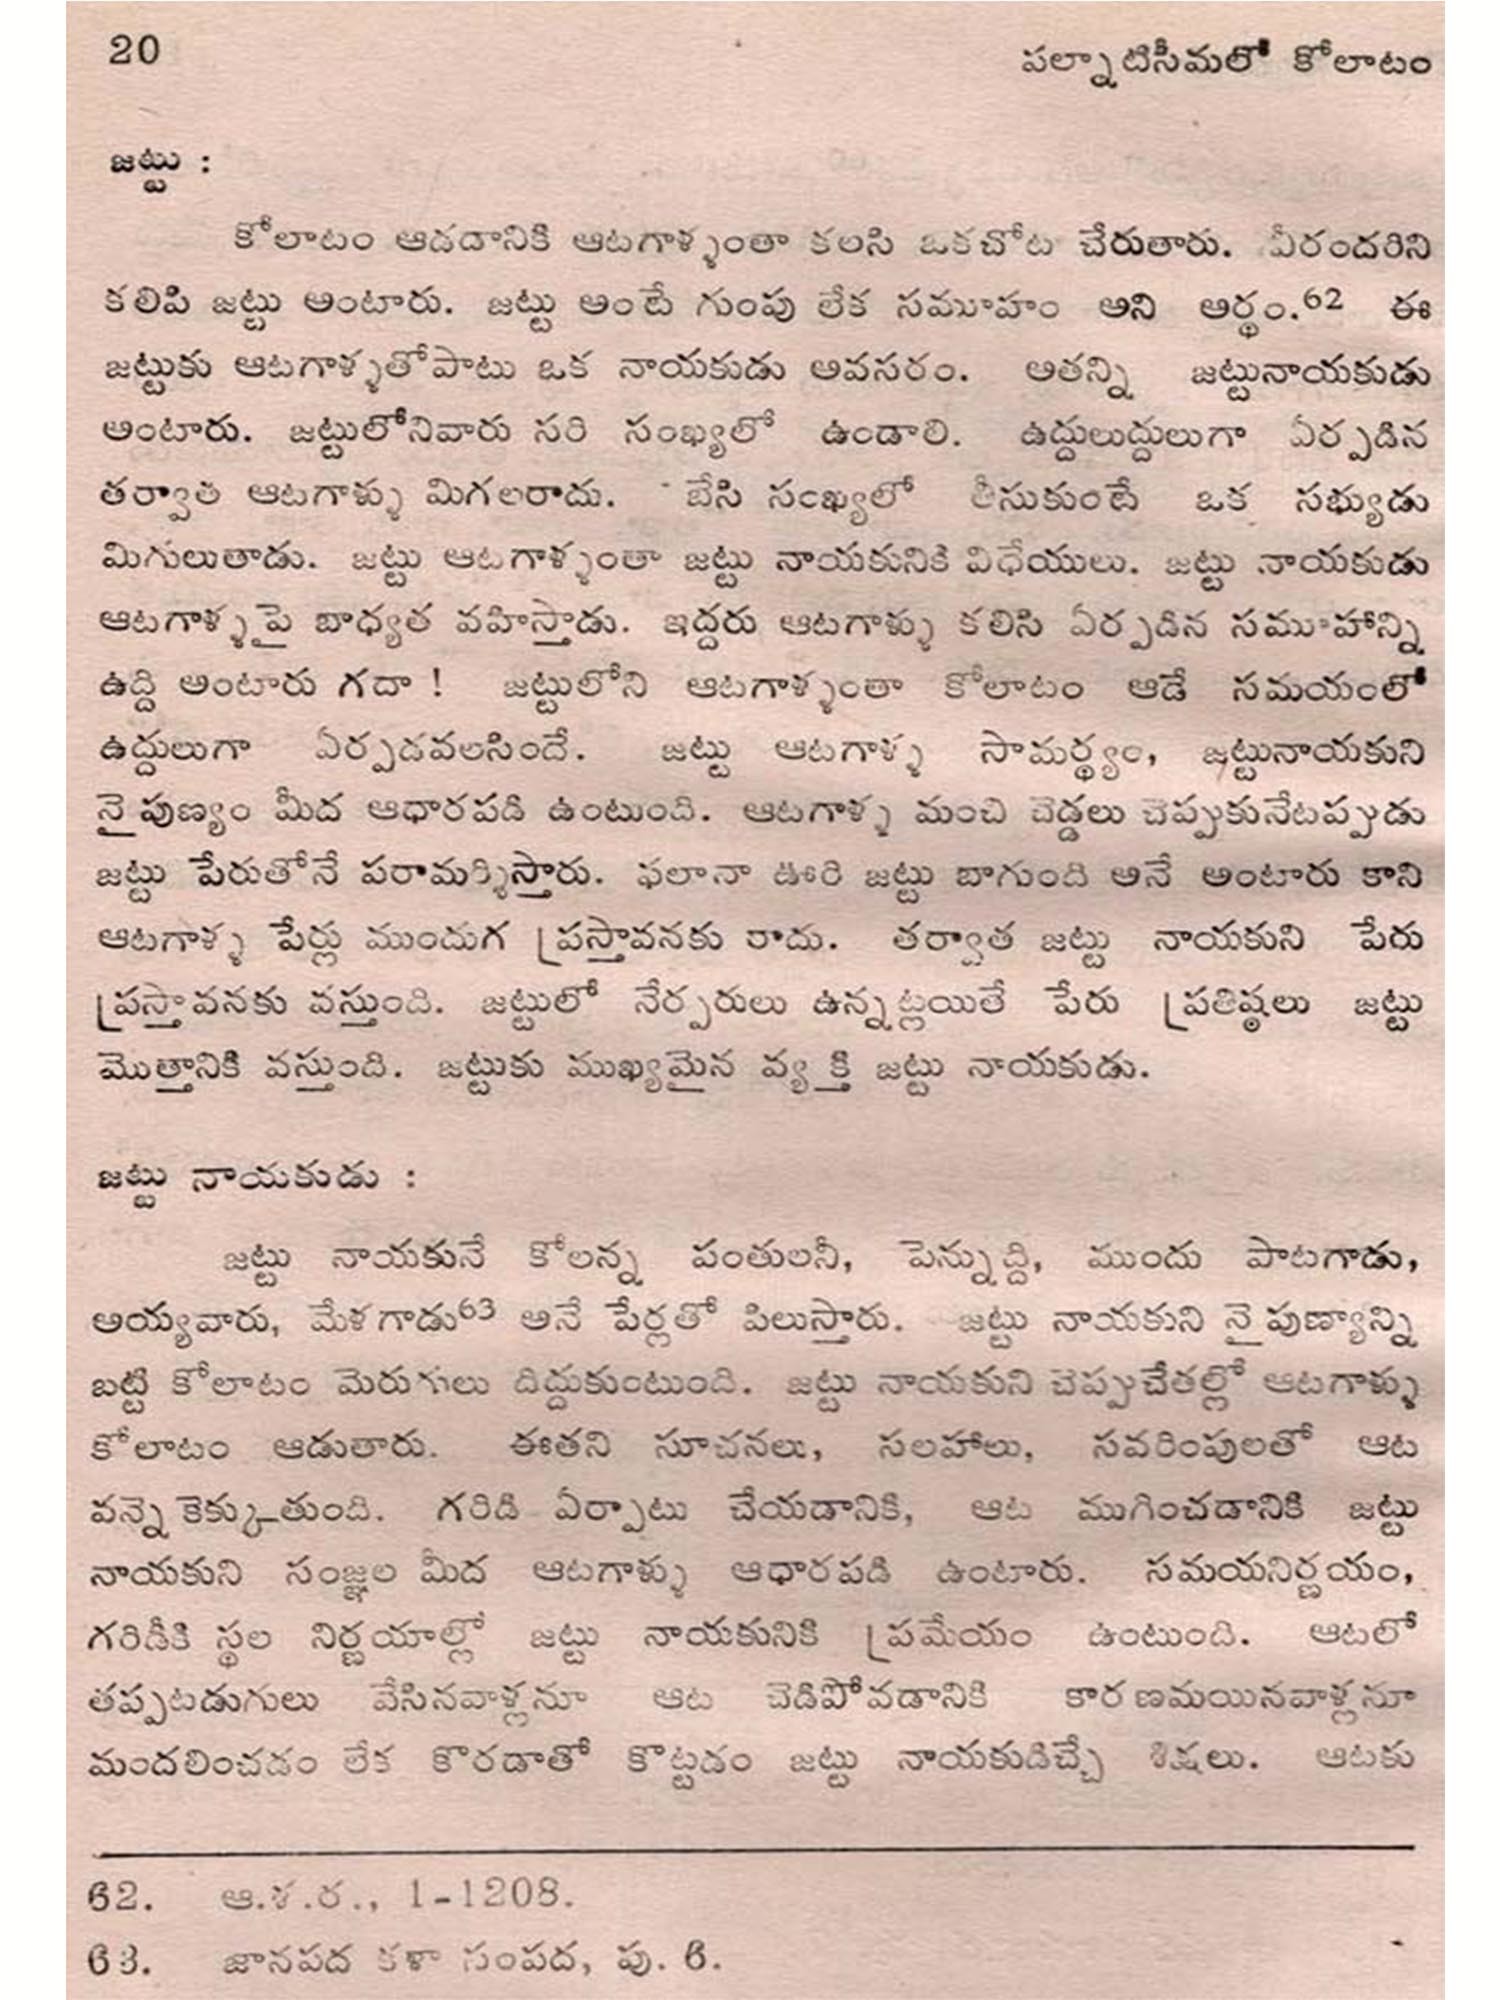 20 పల్నాటిసీమలో కోలాటం
జట్టు :
కోలాటం ఆడడానికి ఆటగాళ్ళంతా కలసి ఒకచోట చేరుతారు. వీరందరిని
కలిపి జట్టు అంటారు. జట్టు అంటే గుంపు లేక సమూహం అని అర్థం.62 ఈ
జట్టుకు ఆటగాళ్ళతోపాటు ఒక నాయకుడు అవసరం. అతన్ని జట్టునాయకుడు
అంటారు. జట్టులోనివారు సరి సంఖ్యలో ఉండాలి. ఉద్దులుద్దులుగా ఏర్పడిన
తర్వాత ఆటగాళ్ళు మిగలరాదు. బేసి సంఖ్యలో తీసుకుంటే ఒక సభ్యుడు
మిగులుతాడు. జట్టు ఆటగాళ్ళంతా జట్టు నాయకునికి విధేయులు. జట్టు నాయకుడు
ఆటగాళ్ళపై బాధ్యత వహిస్తాడు. ఇద్దరు ఆటగాళ్ళు కలిసి ఏర్పడిన సమూహాన్ని
ఉద్ది అంటారు గదా ! జట్టులోని ఆటగాళ్ళంతా కోలాటం ఆడే సమయంలో
ఉద్దులుగా ఏర్పడవలసిందే. జట్టు ఆటగాళ్ళ సామర్థ్యం, జట్టునాయకుని
నైపుణ్యం మీద ఆధారపడి ఉంటుంది. ఆటగాళ్ళ మంచి చెడ్డలు చెప్పుకునేటప్పుడు
జట్టు పేరుతోనే పరామర్శిస్తారు. ఫలానా ఊరి జట్టు బాగుంది అనే అంటారు కాని
ఆటగాళ్ళ పేర్లు ముందుగ ప్రస్తావనకు రాదు. తర్వాత జట్టు నాయకుని పేరు
ప్రస్తావనకు వస్తుంది. జట్టులో నేర్పరులు ఉన్నట్లయితే పేరు ప్రతిష్ఠలు జట్టు
మొత్తానికి వస్తుంది. జట్టుకు ముఖ్యమైన వ్యక్తి జట్టు నాయకుడు.
జట్టు నాయకుడు :
జట్టు నాయకునే కోలన్న పంతులనీ, పెన్నుద్ది, ముందు పాటగాడు,
అయ్యవారు, మేళగాడు63 అనే పేర్లతో పిలుస్తారు. జట్టు నాయకుని నైపుణ్యాన్ని
బట్టి కోలాటం మెరుగులు దిద్దుకుంటుంది. జట్టు నాయకుని చెప్పుచేతల్లో ఆటగాళ్ళు
కోలాటం ఆడుతారు. ఈతని సూచనలు, సలహాలు, సవరింపులతో ఆట
వన్నెకెక్కుతుంది. గరిడి ఏర్పాటు చేయడానికి, ఆట ముగించడానికి జట్టు
నాయకుని సంజ్ఞల మీద ఆటగాళ్ళు ఆధారపడి ఉంటారు. సమయనిర్ణయం,
గరిడీకి స్థల నిర్ణయాల్లో జట్టు నాయకునికి ప్రమేయం ఉంటుంది. ఆటలో
తప్పటడుగులు వేసినవాళ్లనూ ఆట చెడిపోవడానికి కారణమయినవాళ్లనూ
మందలించడం లేక కొరడాతో కొట్టడం జట్టు నాయకుడిచ్చే శిక్షలు. ఆటకు
62. ఆ.శ.ర., 1-1208.
63. జానపద కళా సంపద, పు. 6.